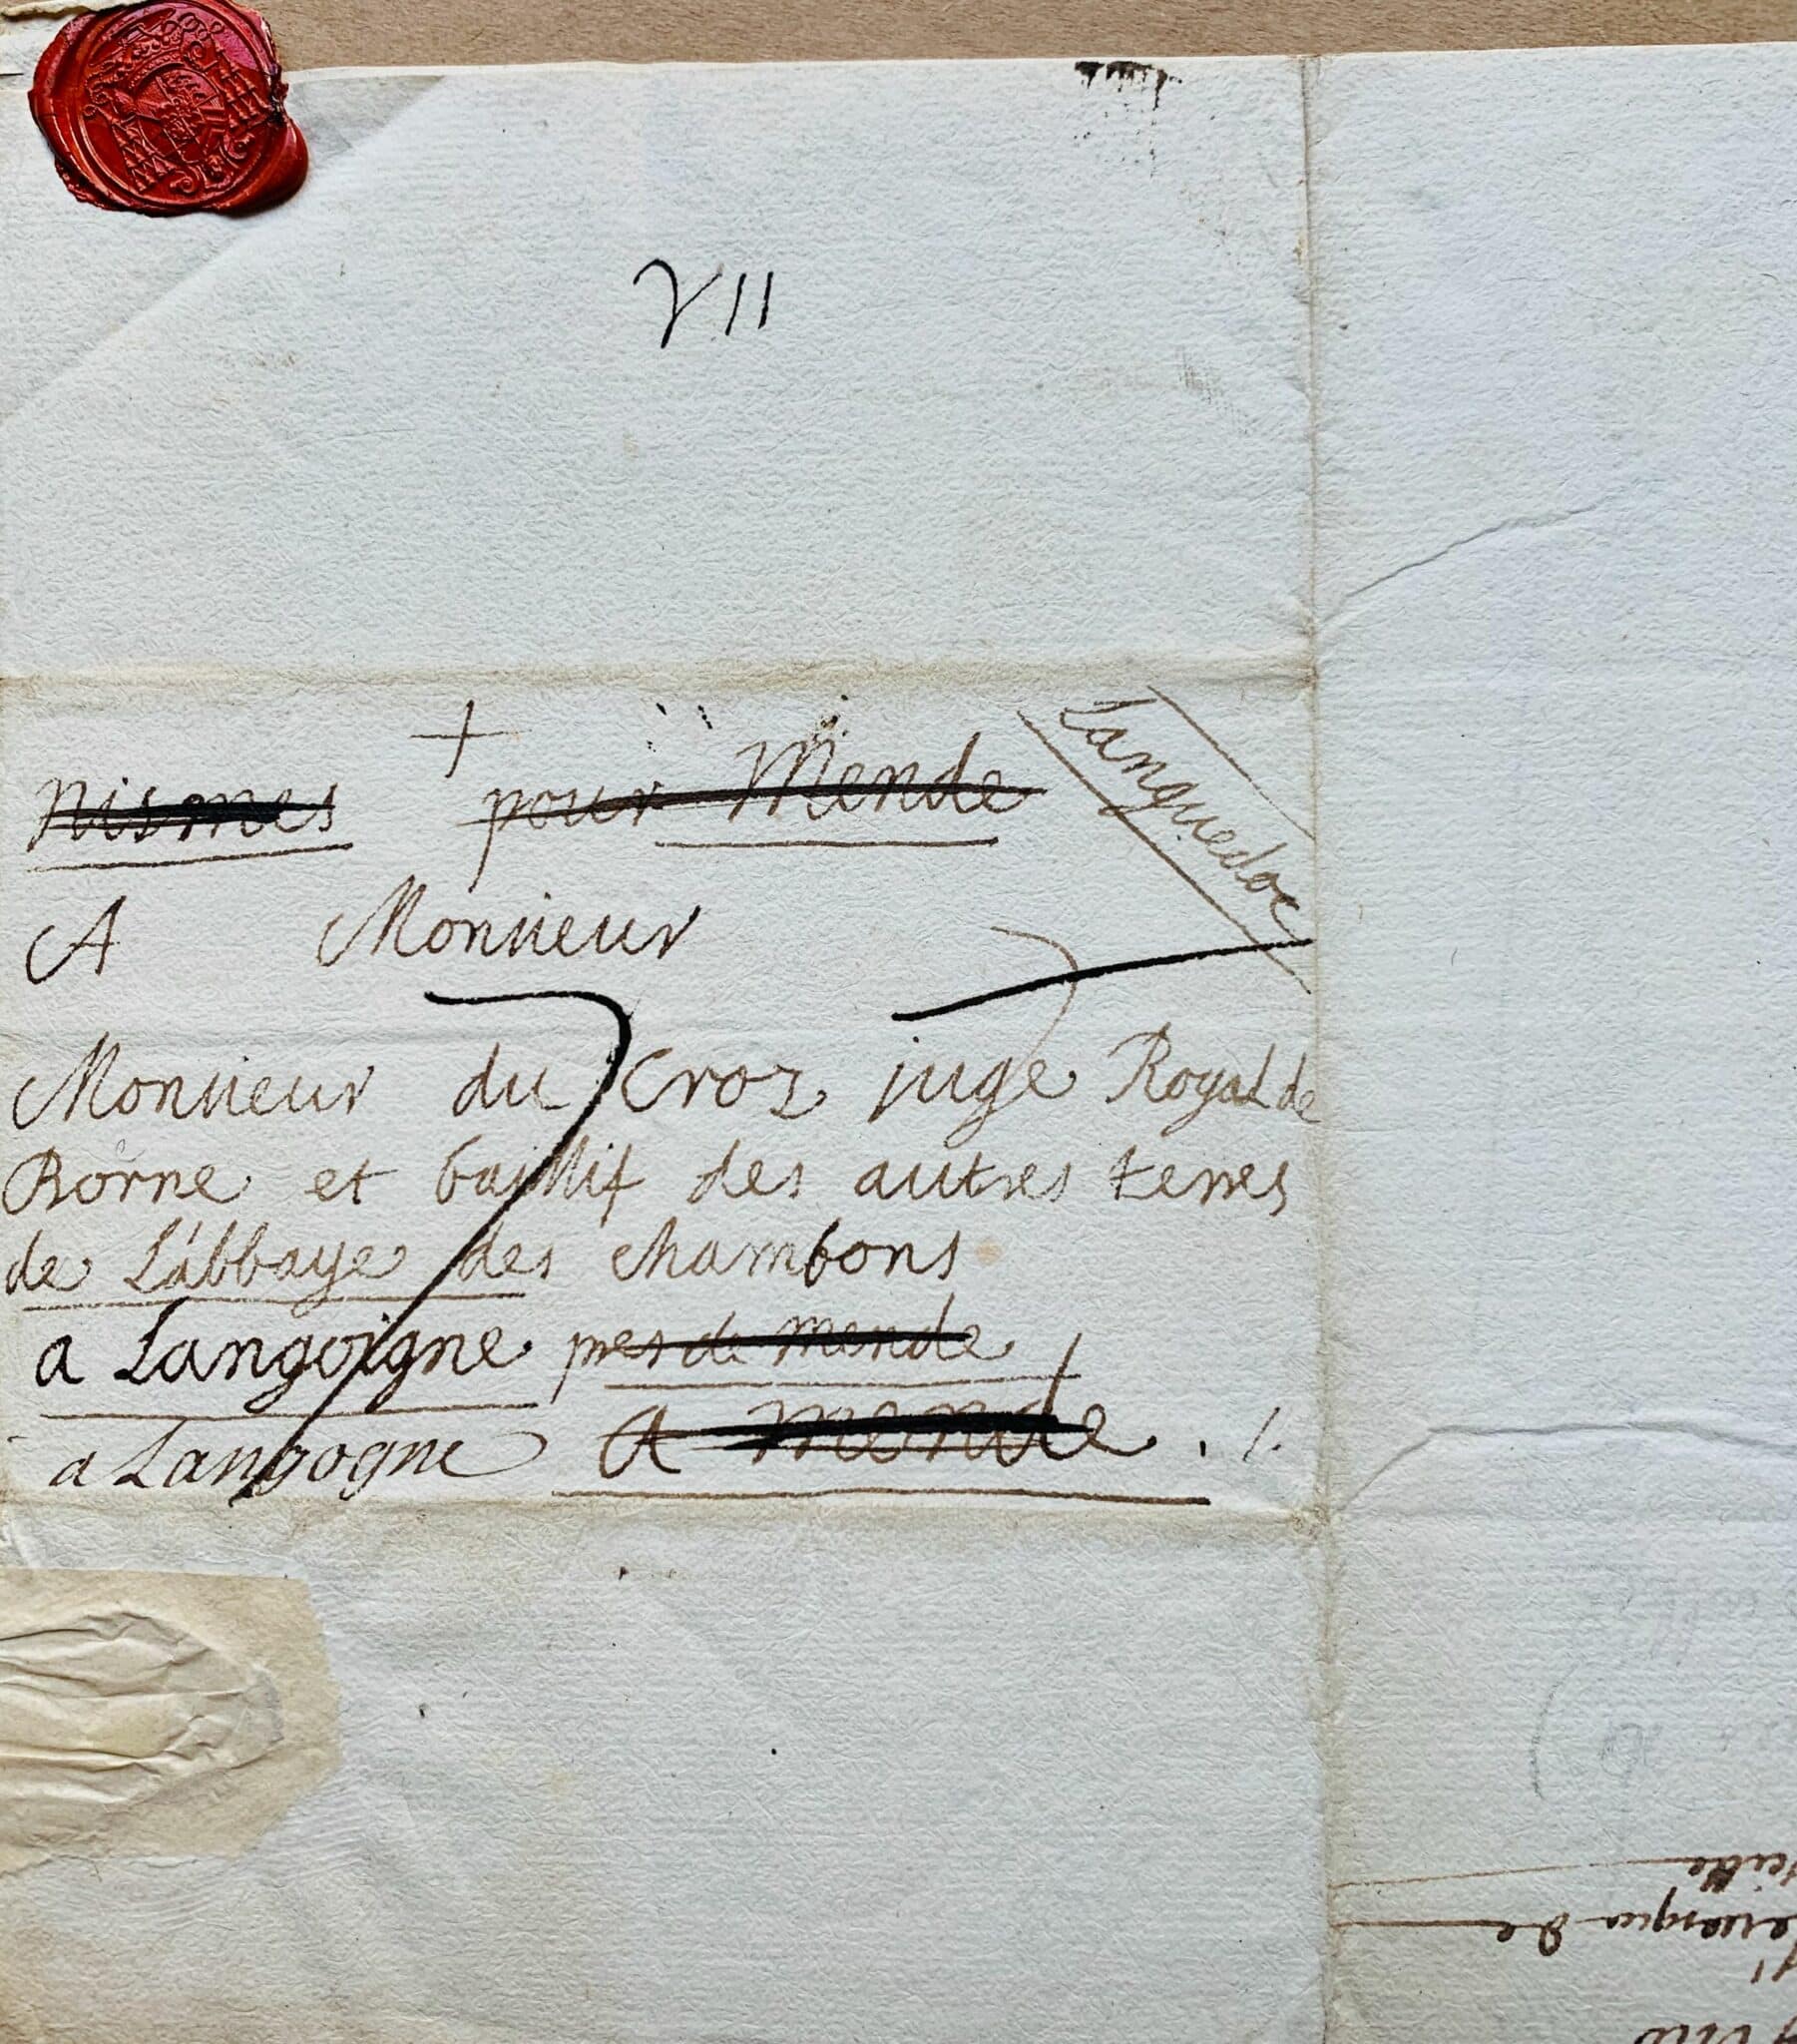 VII
+
nismes pour Mende
Languedoc
A Monsieur
Monsieur du Croz juge Royal de
Borne et baillif des autres terres
de L'abbaye des chambons
a Langoigne pres de mende
a Langogne a mende . /.